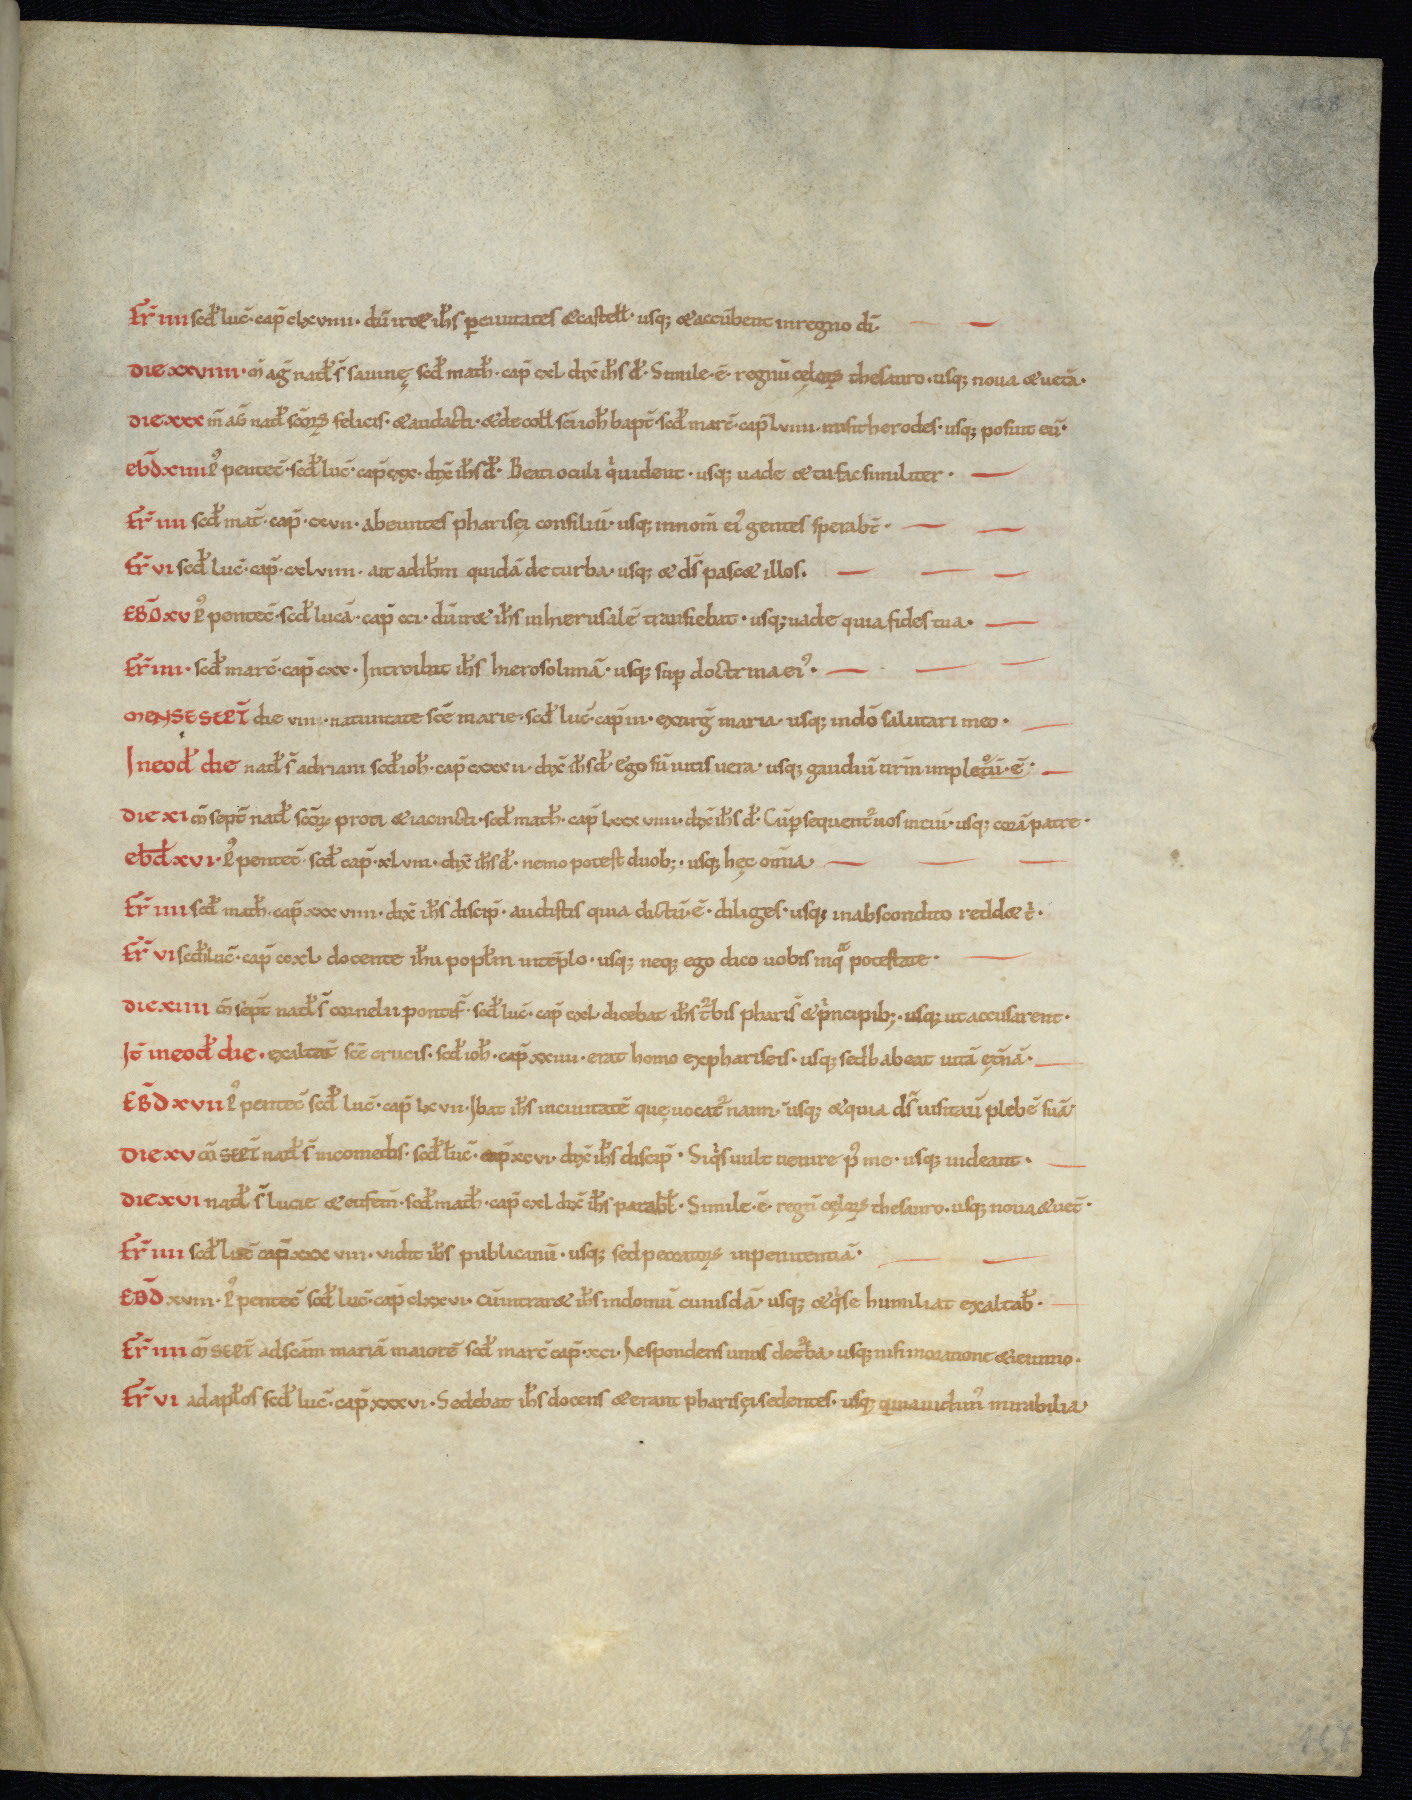 Fr̄ iiii scd̄ luc̄· cap̄ clxviiii· dū iret ih̄s per ciuitates & castell̄· usq; & accūbent in regno dī·
Die xxviiii· m̄ ag̃ nat̄ s̄ sauinę scd̄ math̄· cap̄ cxl dix̄ ih̄s d̄· Simile·ē· regnū cęlorꝝ thesauro· usq; noua & uetā·
Die xxx m̄ aḡ nat̄ scōrꝝ felicis· & audacti· & decoll̄ sc̄i ioh̄ bapt̄· scd̄ marc̄· cap̄ lviiii· misit herodes· usq; posiut eū·
Ebd̄ xiiii p̄ pentec̄· scd̄ luc̄· cap̄ cxx· dix̄ ih̄s d̄· Beati oculi qui uident· usq; uade & tu fac similiter·
Fr̄ iiii scd̄ mat̄· cap̄· cxvii· abeuntes pharisęi consiliū· usq; in nom̄ ei⁹ gentes sperabt̄·
Fr̄ vi scd̄ luc̄· cap̄· cxlviiii· ait ad ih̄m quidā de turba· usq; & ds̄ pascet illos·
Ebd̄ xv p⁹ pentec̄· scd̄ lucā· cap̄ cci· dū iret ih̄s in hierusalē transiebat· usq; uade quia fides tua·
Fr̄ iiii· scd̄ marc̄· cap̄ cxx· Introibit ih̄s hierosolimā· usq; sup̄ doctrina ei⁹·
Mense sept̄ die viii· natiuitate sc̄e marie· scd̄ luc̄· cap̄ iii· exurg̃ maria· usq; in dō salutari meo·
In eod̄ die nat̄ s̄ adriani scd̄ ioh̄· cap̄ cxxxii· dix̄ ih̄s d̄· ego sū uitis uera· usq; gaudiū ur̄m impletū·ē·
Die xi m̄ sept̄ nat̄ scōrꝝ proti & iacincti· scd̄ math̄· cap̄ lxxxviiii· dix̄ ih̄s d̄· Cū persequent̄ uos in ciui· usq; corā patre·
Ebd̄ xvi· p⁹ pentec̄· scd̄ cap̄· xlviii· dix̄ ih̄s d̄· nemo potest duob;· usq; hęc om̄ia
Fr̄ iiii scd̄ math̄· cap̄ xxxviiii· dix̄ ih̄s discip̄· audistis quia dictū·ē· diliges· usq; in abscondito reddet t̄·
Fr̄ vi scd̄ luc̄· cap̄ ccxl docente ih̄u popl̄m in tēplo· usq; neq; ego dico uobis in qua potestate·
Die xiiii m̄ sept̄ nat̄ s̄ cornelii pontif̄· scd̄ luc̄· cap̄ cxl dicebat ih̄s turbis pharis̄ & principib;· usq; ut accusarent·
It̄ in eod̄ die· exaltat̄ sc̄e crucis· scd̄ ioh̄· cap̄ xxiiii· erat homo ex phariseis· usq; sed habeat uitā ęt̄nā·
Ebd̄ xvii p⁹ pentec̄ scd̄ luc̄· cap̄ lxvii· Ibat ih̄s in ciuitatē quę uocat̄ naim· usq; & quia ds̄ uisitau̅ plebē suā
Die xv m̄ sept̄ nat̄ s̄ nicomedis· scd̄ luc̄· cap̄ xcvi· dix̄ ih̄s discip̄· Siquis uult uenire p⁹ me· usq; uideant·
Die xvi nat̄ s̄ lucie & eufem̄· scd̄ math̄· cap̄ cxl dix̄ ih̄s parabl̄· Simile·ē· regn̄ cęlorꝝ thesauro· usq; noua & uet̄·
Fr̄ iiii scd̄ luc̄ cap̄ xxxviii· vidit ih̄s publicanū· usq; sed peccatorꝝ in penitentiā·
Ebd̄ xviii· p⁹ pentec̄ scd̄ luc̄· cap̄ clxxvi· cū intraret ih̄s in domū cuiusdā· usq; & qui se humiliat exaltab̄·
Fr̄ iiii m̄ sept̄ ad scām mariā maiorē scd̄ marc̄ cap̄· xci· Respondens unus de turba· usq; nisi in oratione & ieiunio·
Fr̄ vi ad apl̄os scd̄ luc̄· cap̄ xxxvi· Sedebat ih̄s docens & erant pharisęi sedentes· usq; quia uidim⁹ mirabilia·